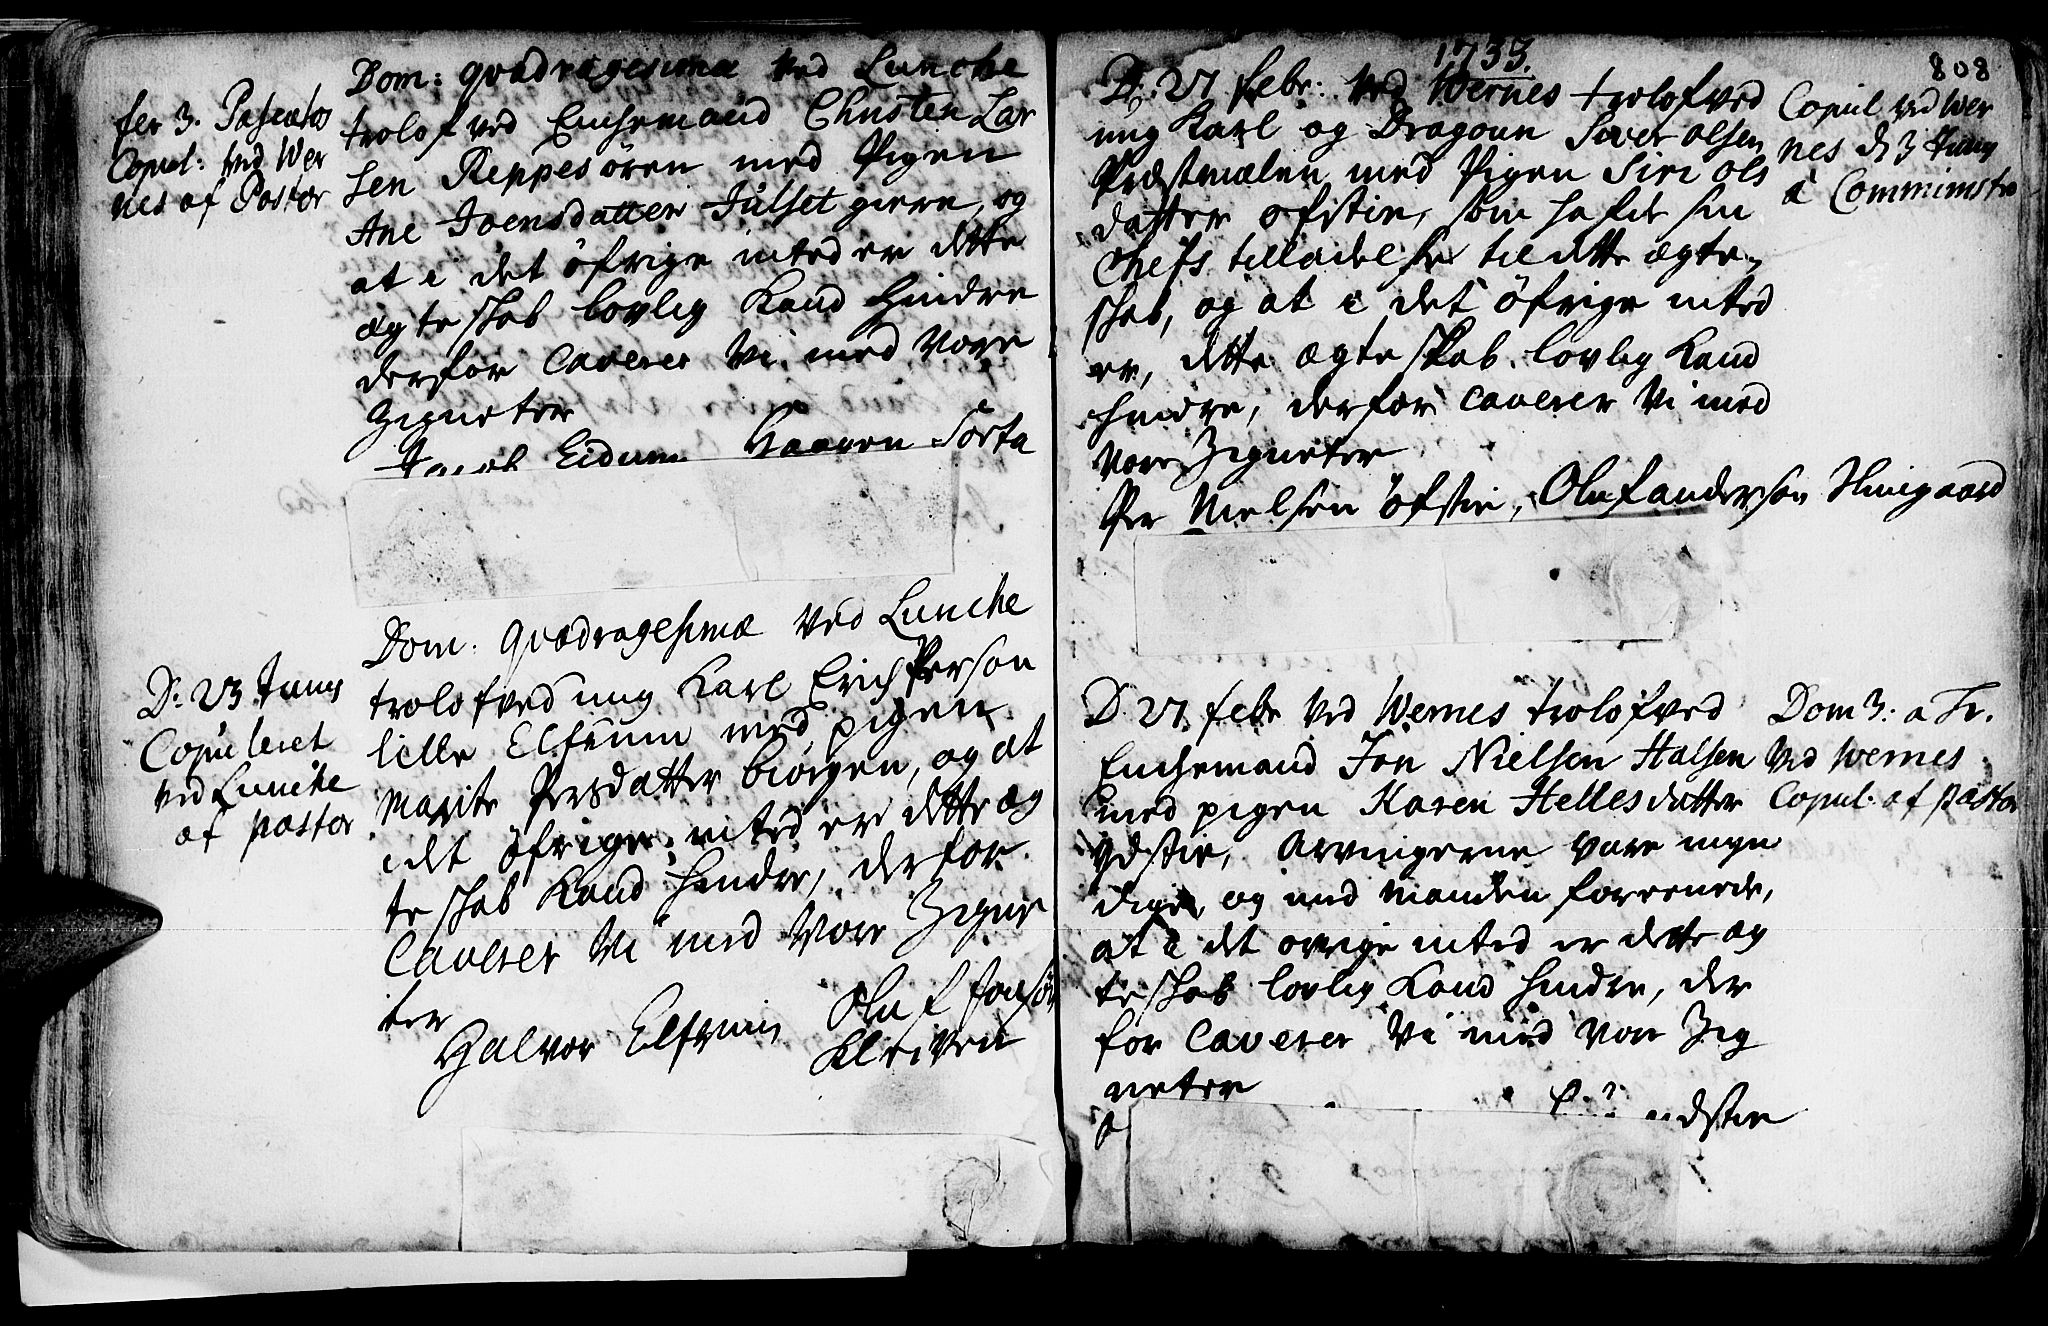 fer 3. Paschatos
Copul: ved Wer
nes af Pastor
Dom: qvadragesimæ ved Luncke
trolofved Enchemand Christen Lar
sen Reppesören med Pigen
Ane Joensdatter Julset giere, og
at i det öfrige inted er dette
ægteskab lovlig Kand hindre
derfor Caverer Vi med Vore
Zigneter
Jacob Eidum Haagen Sorta
D: 23 Juny
Copuleret
ved Luncke
af pastor
Dom: qvadragesimæ ved Luncke
trolofved ung Karl Erich Person
lille Elfrum med pigen
Marite Persdatter biörgen, og at
i det öfrige inted er dette æg
teskab Kand hindre, derfor
Caverer Vi med Vore Zigne
ter
Halvor Elfrum Oluf Jonsön
Kleiven
1735.
808
D: 27 febr: ved Wernes trolofved
ung Karl og Dragoun Siver olsen
Præstmælen med Pigen Siri Ols
datter öfstie, som hafde sin
Chefs tilladelse til dette ægte
skab, og at i det öfrige inted
er, dette ægteskab lovlig Kand
hindre, derfor Caverer Vi med
Vore Zigneter
Per Nielsen öfstie, Oluf anderson Huusgaard
Copul ved Wer
nes d 3 Juny
a Comministro
D. 27. febr ved Wernes trolofved
Enchemand Jon Nielsen Halsen
med pigen Karen Hellesdatter
ydstie, Arvingerne vare myn
dige, og med manden foreenede,
at i det övrige inted er dette æg
teskab lovlig Kand hindre, der
for Caverer Vi med vore Zig
neter
ydstie
Dom 3: a Tr.
ved Wernes
Copul. af pastor